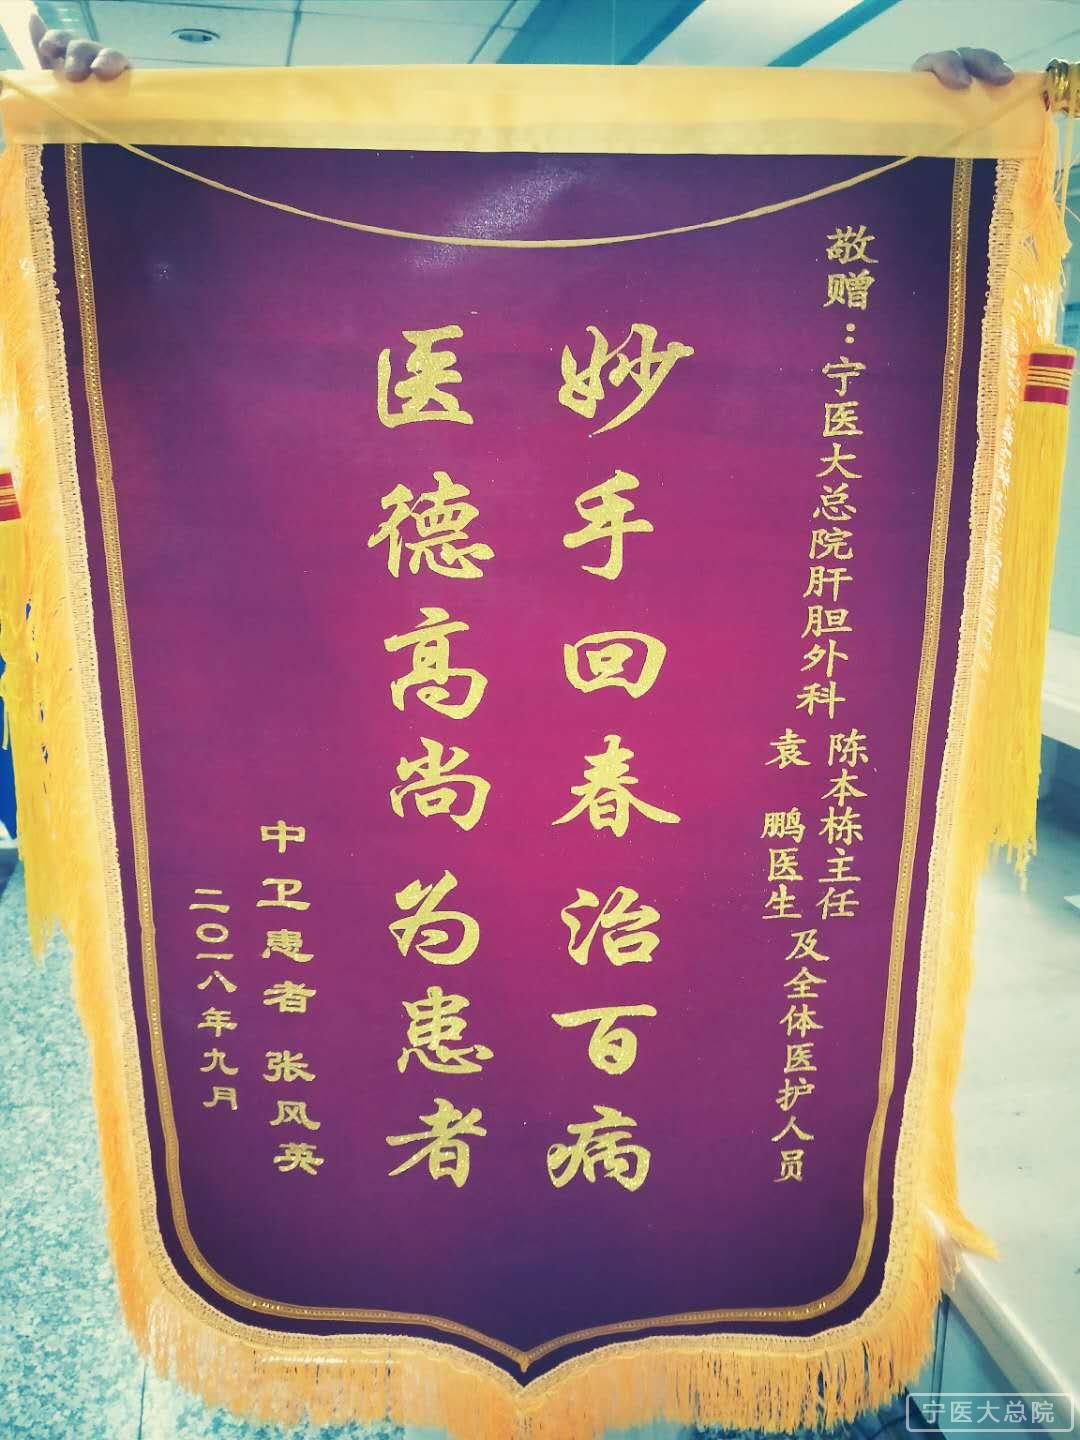 敬赠：宁医大总院肝胆外科
陈本栋主任
袁鹏医生
及全体医护人员
妙手回春治百病
医德高尚为患者
中卫患者 张风英
二〇一八年九月
宁医大总院